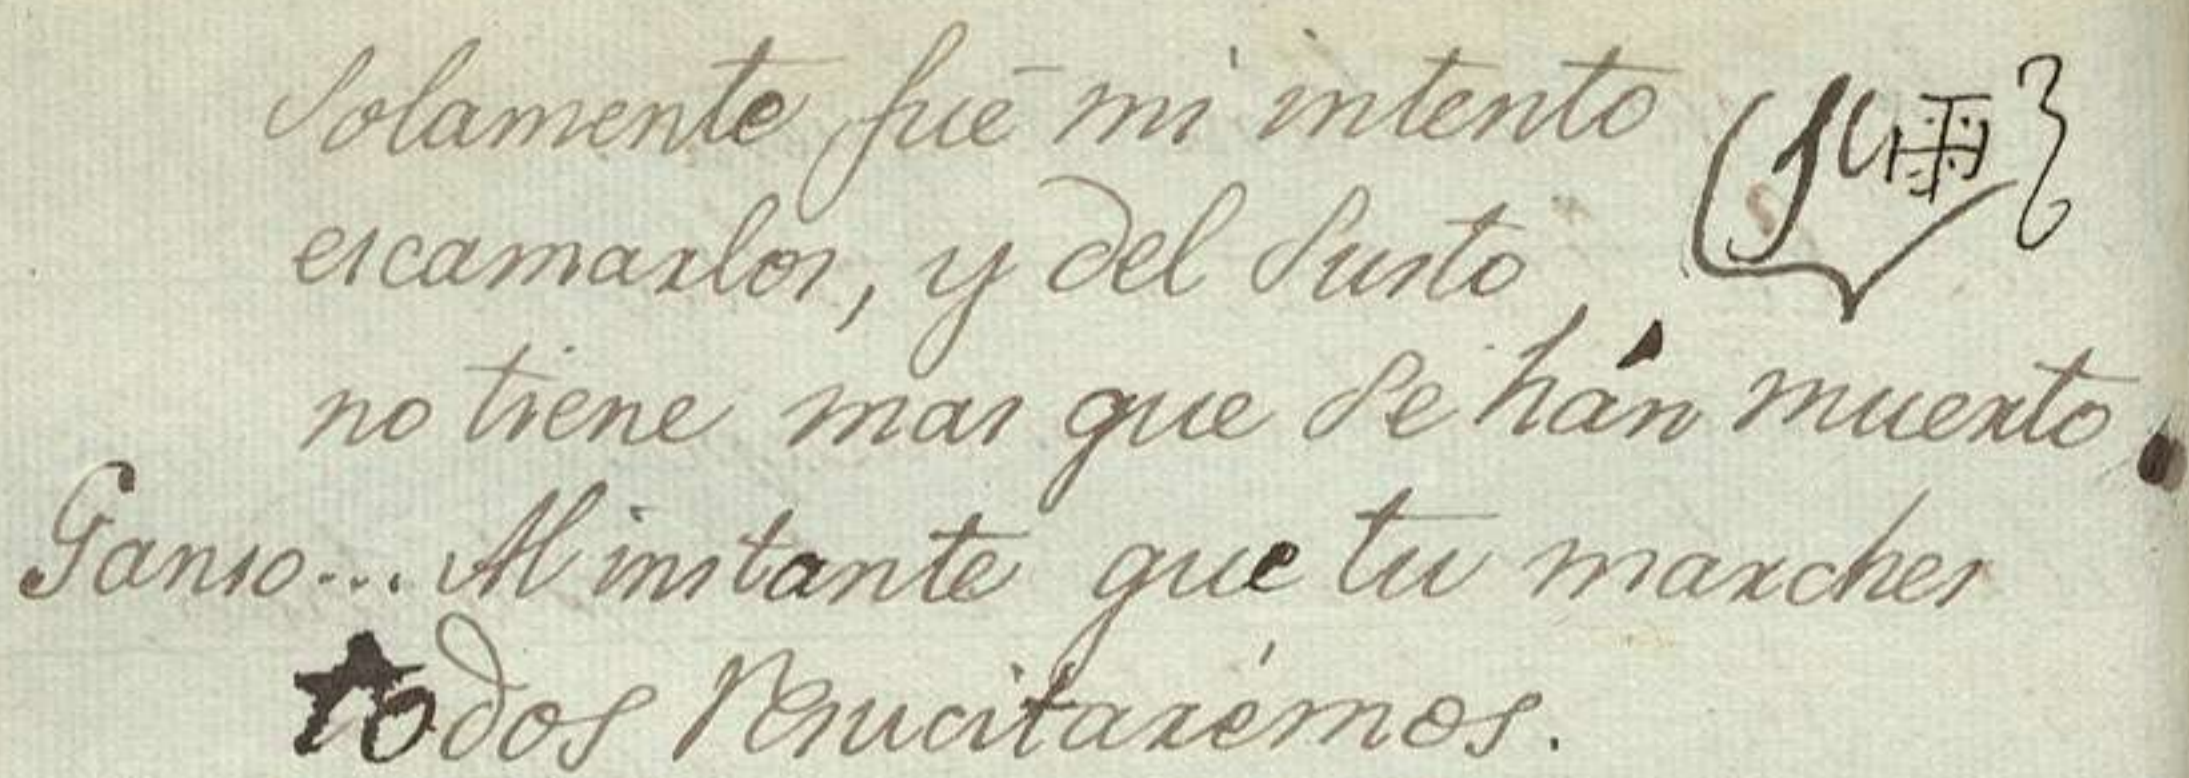 Solamente fué mi intento
escamarlos, y del Susto
no tiene mas que se hán muerto.
Ganso... Al instante que tu marches
todos Resucitarémos.